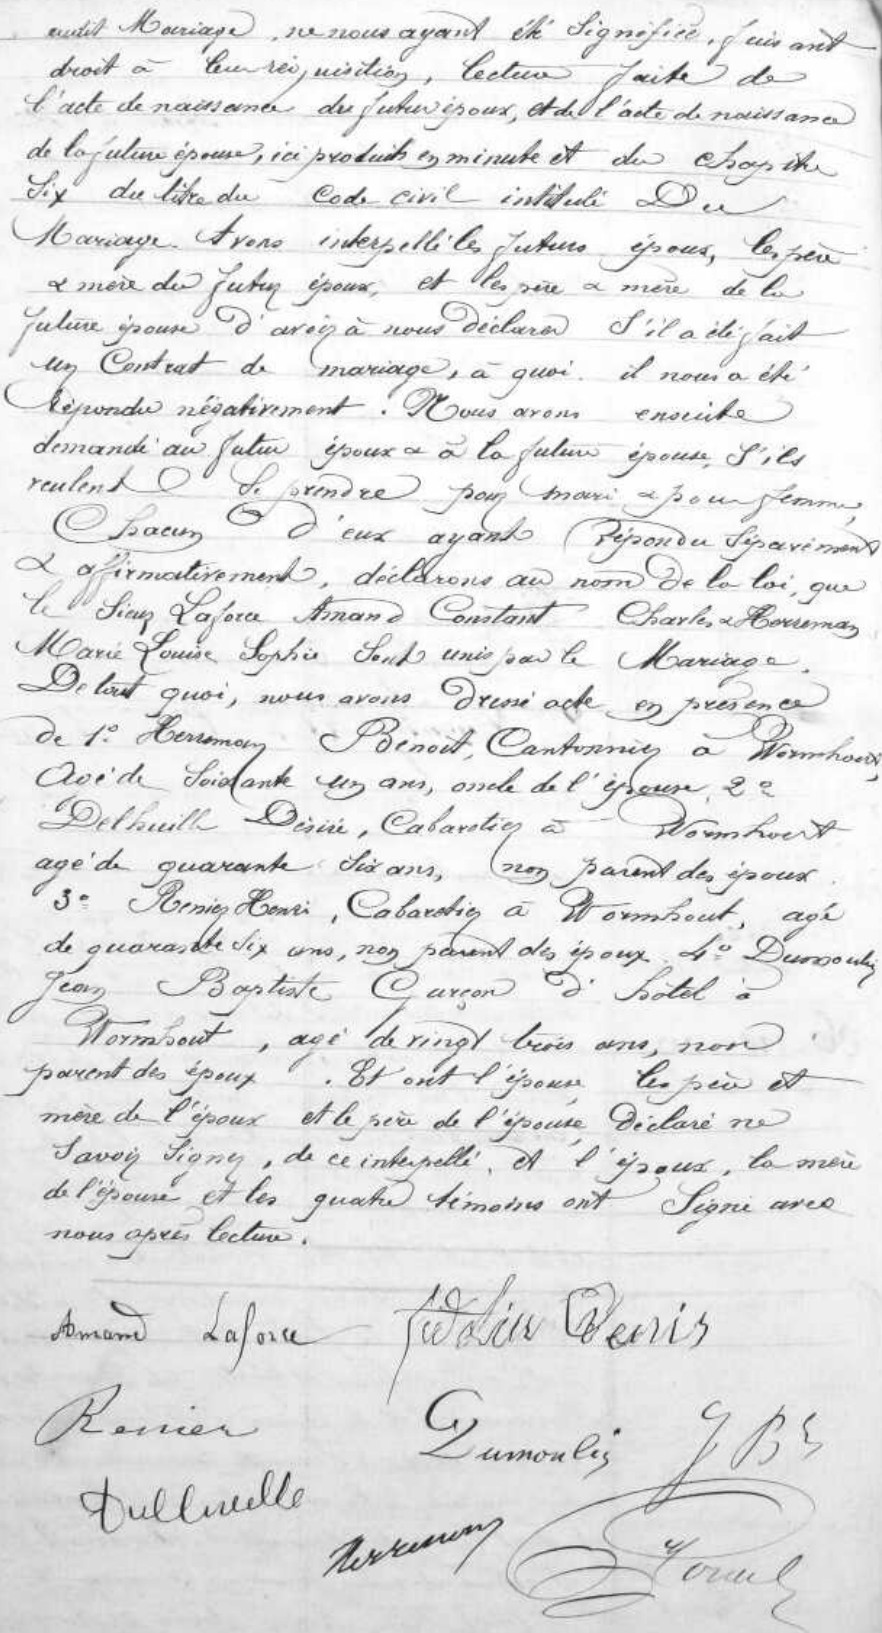 audit Mariage, ne nous ayant été signifiée, faisant
droit à leur réquisition, lecture faite de
l'acte de naissance du futur époux, et de l'acte de naissance
de la future épouse, ici produits en minute et du chapitre
Six du titre du Code civil intitulé Du
Mariage. Avons interpellé les futurs époux, les père
& mère du futur époux, et les père & mère de la
future épouse d'avoir à nous déclarer S'il a été fait
un Contrat de mariage, à quoi il nous a été
répondu négativement. Nous avons ensuite
demandé au futur époux & à la future épouse, S'ils
veulent Se prendre pour mari & pour femme,
Chacun d'eux ayant répondu Séparément
& affirmativement, déclarons au nom de la loi, que
le Sieur Laforce Amand Constant Charles & Herreman
Marie Louise Sophie Sont unis par le Mariage.
De tout quoi, nous avons dressé acte en présence
de 1° Herreman Benoit, Cantonnier à Wormhout,
Agé de Soixante un ans, oncle de l'épouse, 2°
Delhuille Désiré, Cabaretier à Wormhout
agé de quarante Six ans, non parent des époux.
3° Renier Henri, Cabaretier à Wormhout, agé
de quarante Six ans, non parent des époux. 4° Dumoulin
Jean Baptiste Garçon d'hôtel à
Wormhout, agé de vingt trois ans, non
parent des époux. Et ont l'épouse, les père et
mère de l'époux et le père de l'épouse, déclaré ne
Savoir Signer, de ce interpellé, et l'époux, la mère
de l'épouse et les quatre témoins ont Signé avec
nous après lecture.
Amand Laforce Denis
Renier Dumoulin J Bte
Delhuille
Herreman